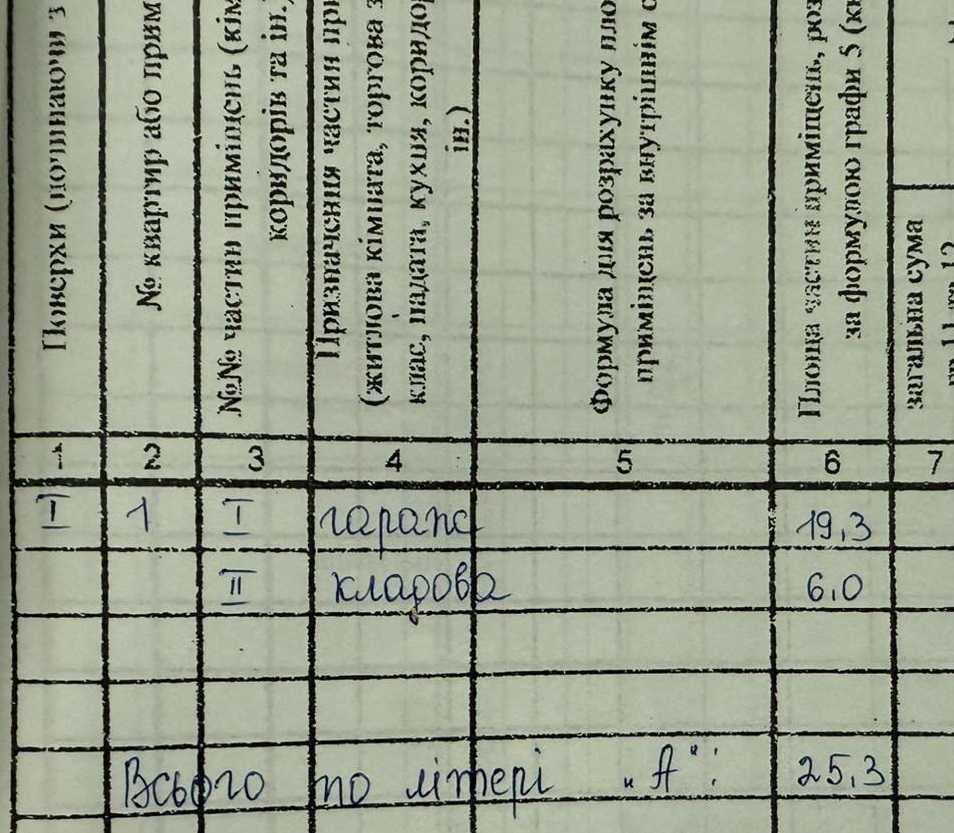 Поверхи (починаючи з
№ квартир або прим
№№ частин приміщень (кім
коридорів та ін.)
Призначення частин при
(житлова кімната, торгова з
клас, палата, кухня, коридор
ін.)
Формула для розрахунку пло
приміщень за внутрішнім о
Площа частин приміщень, роз
за формулою графи 5 (кв
загальна сума
1 2 3 4 5 6 7
I 1 I гараж 19,3
II кладова 6,0
Всього по літері „А": 25,3